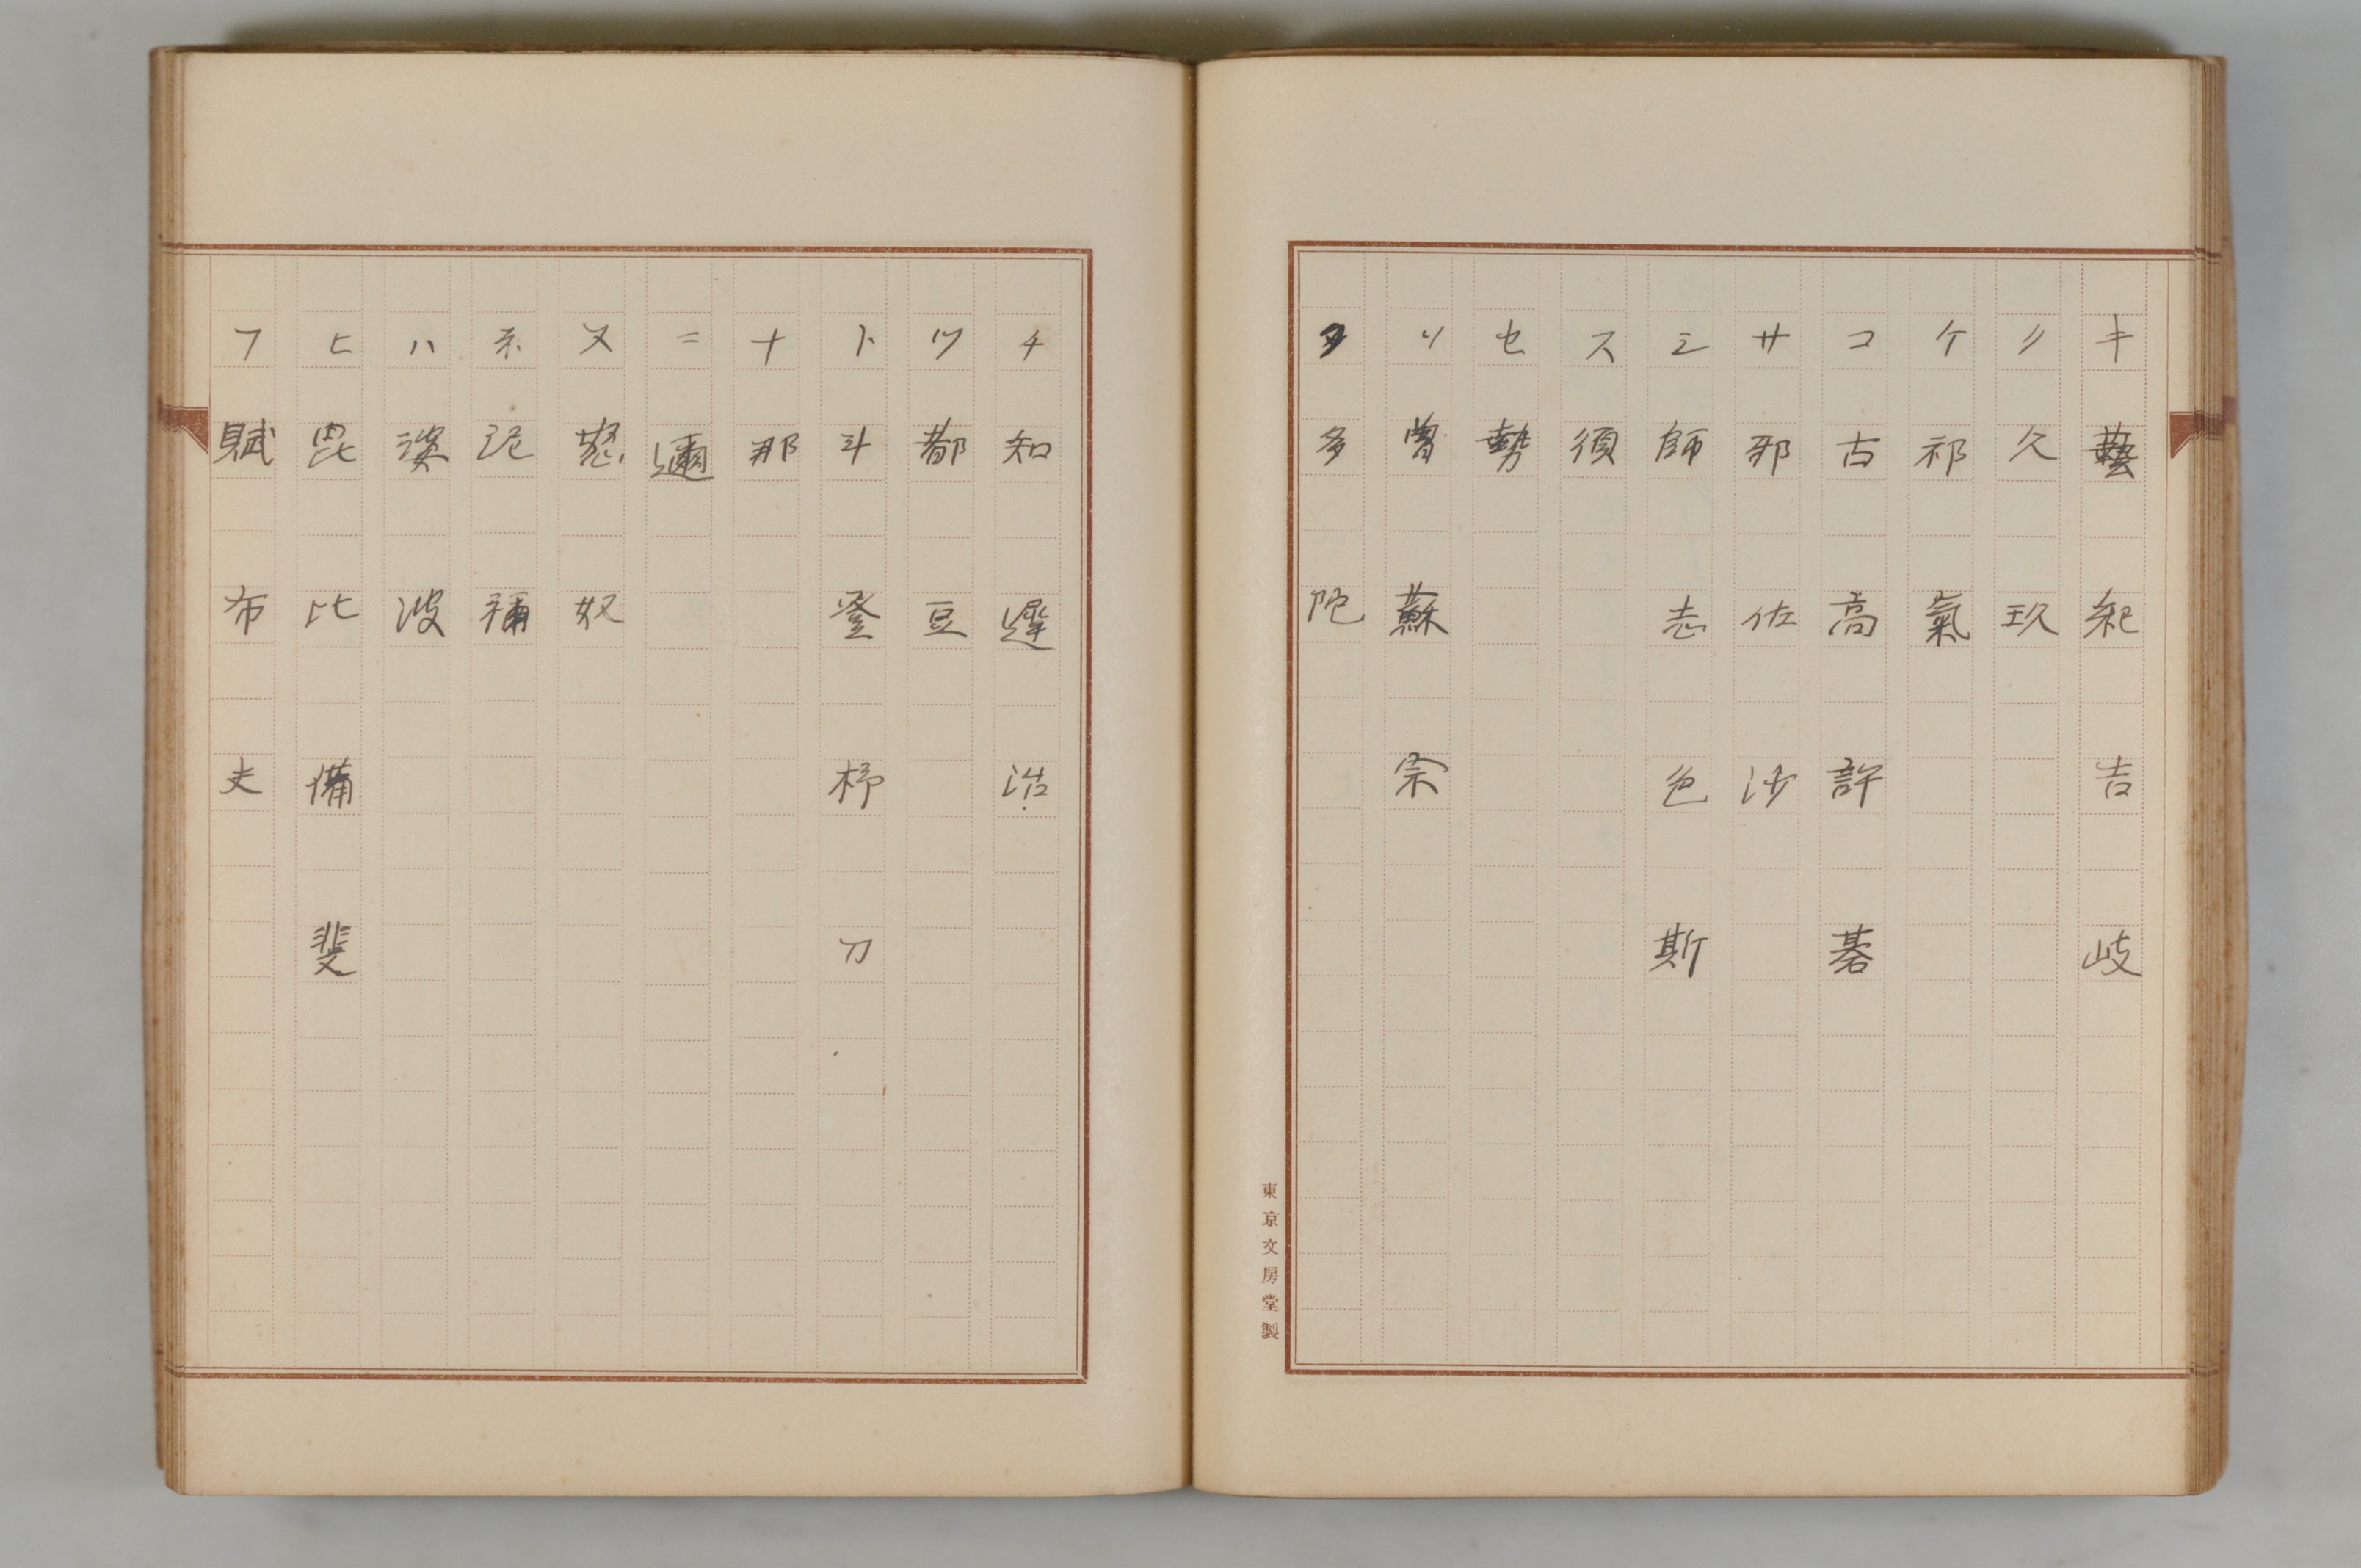 キ 藝 紀 吉 岐
ク 久 玖
ケ 祁 氣
コ 古 高 許 碁
サ 邪 佐 沙
シ 師 志 色 斯
ス 須
セ 勢
ソ 曽 蘇 宗
タ 多 陀
東京文房堂製
チ 知 遅
ツ 都 豆
ト 斗 登 杼 刀
ナ 那
ニ 邇
ヌ 怒 奴
ネ 泥 禰
ハ 婆 波
ヒ 毘 比 備 斐
フ 賦 布 夫